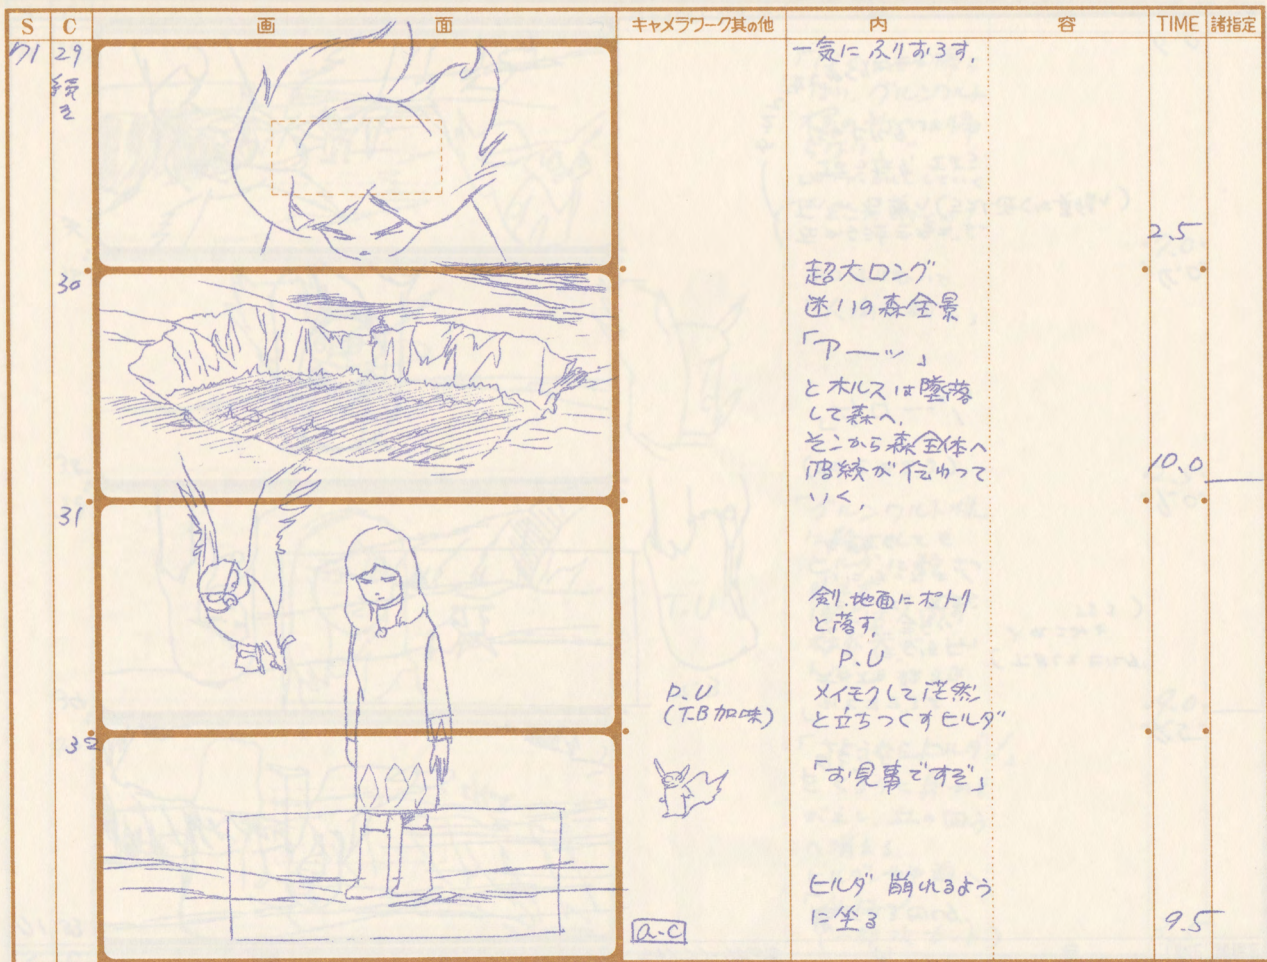 S C 画 面 キャメラワーク其の他 内 容 TIME 諸指定
71 29
続き
一気にふりおろす。
2.5
30
超大ロング
迷いの森全景
「アーッ」
とホルスは墜落
して森へ。
そこから森全体へ
波紋が伝わって
いく。
10.0
31
剣、地面にポトリ
と落す。
P.U
P.U
(T.B加味)
メイモクして茫然
と立ちつくすヒルダ
32
「お見事ですぞ」
ヒルダ 崩れるよう
に坐る
a-c
9.5